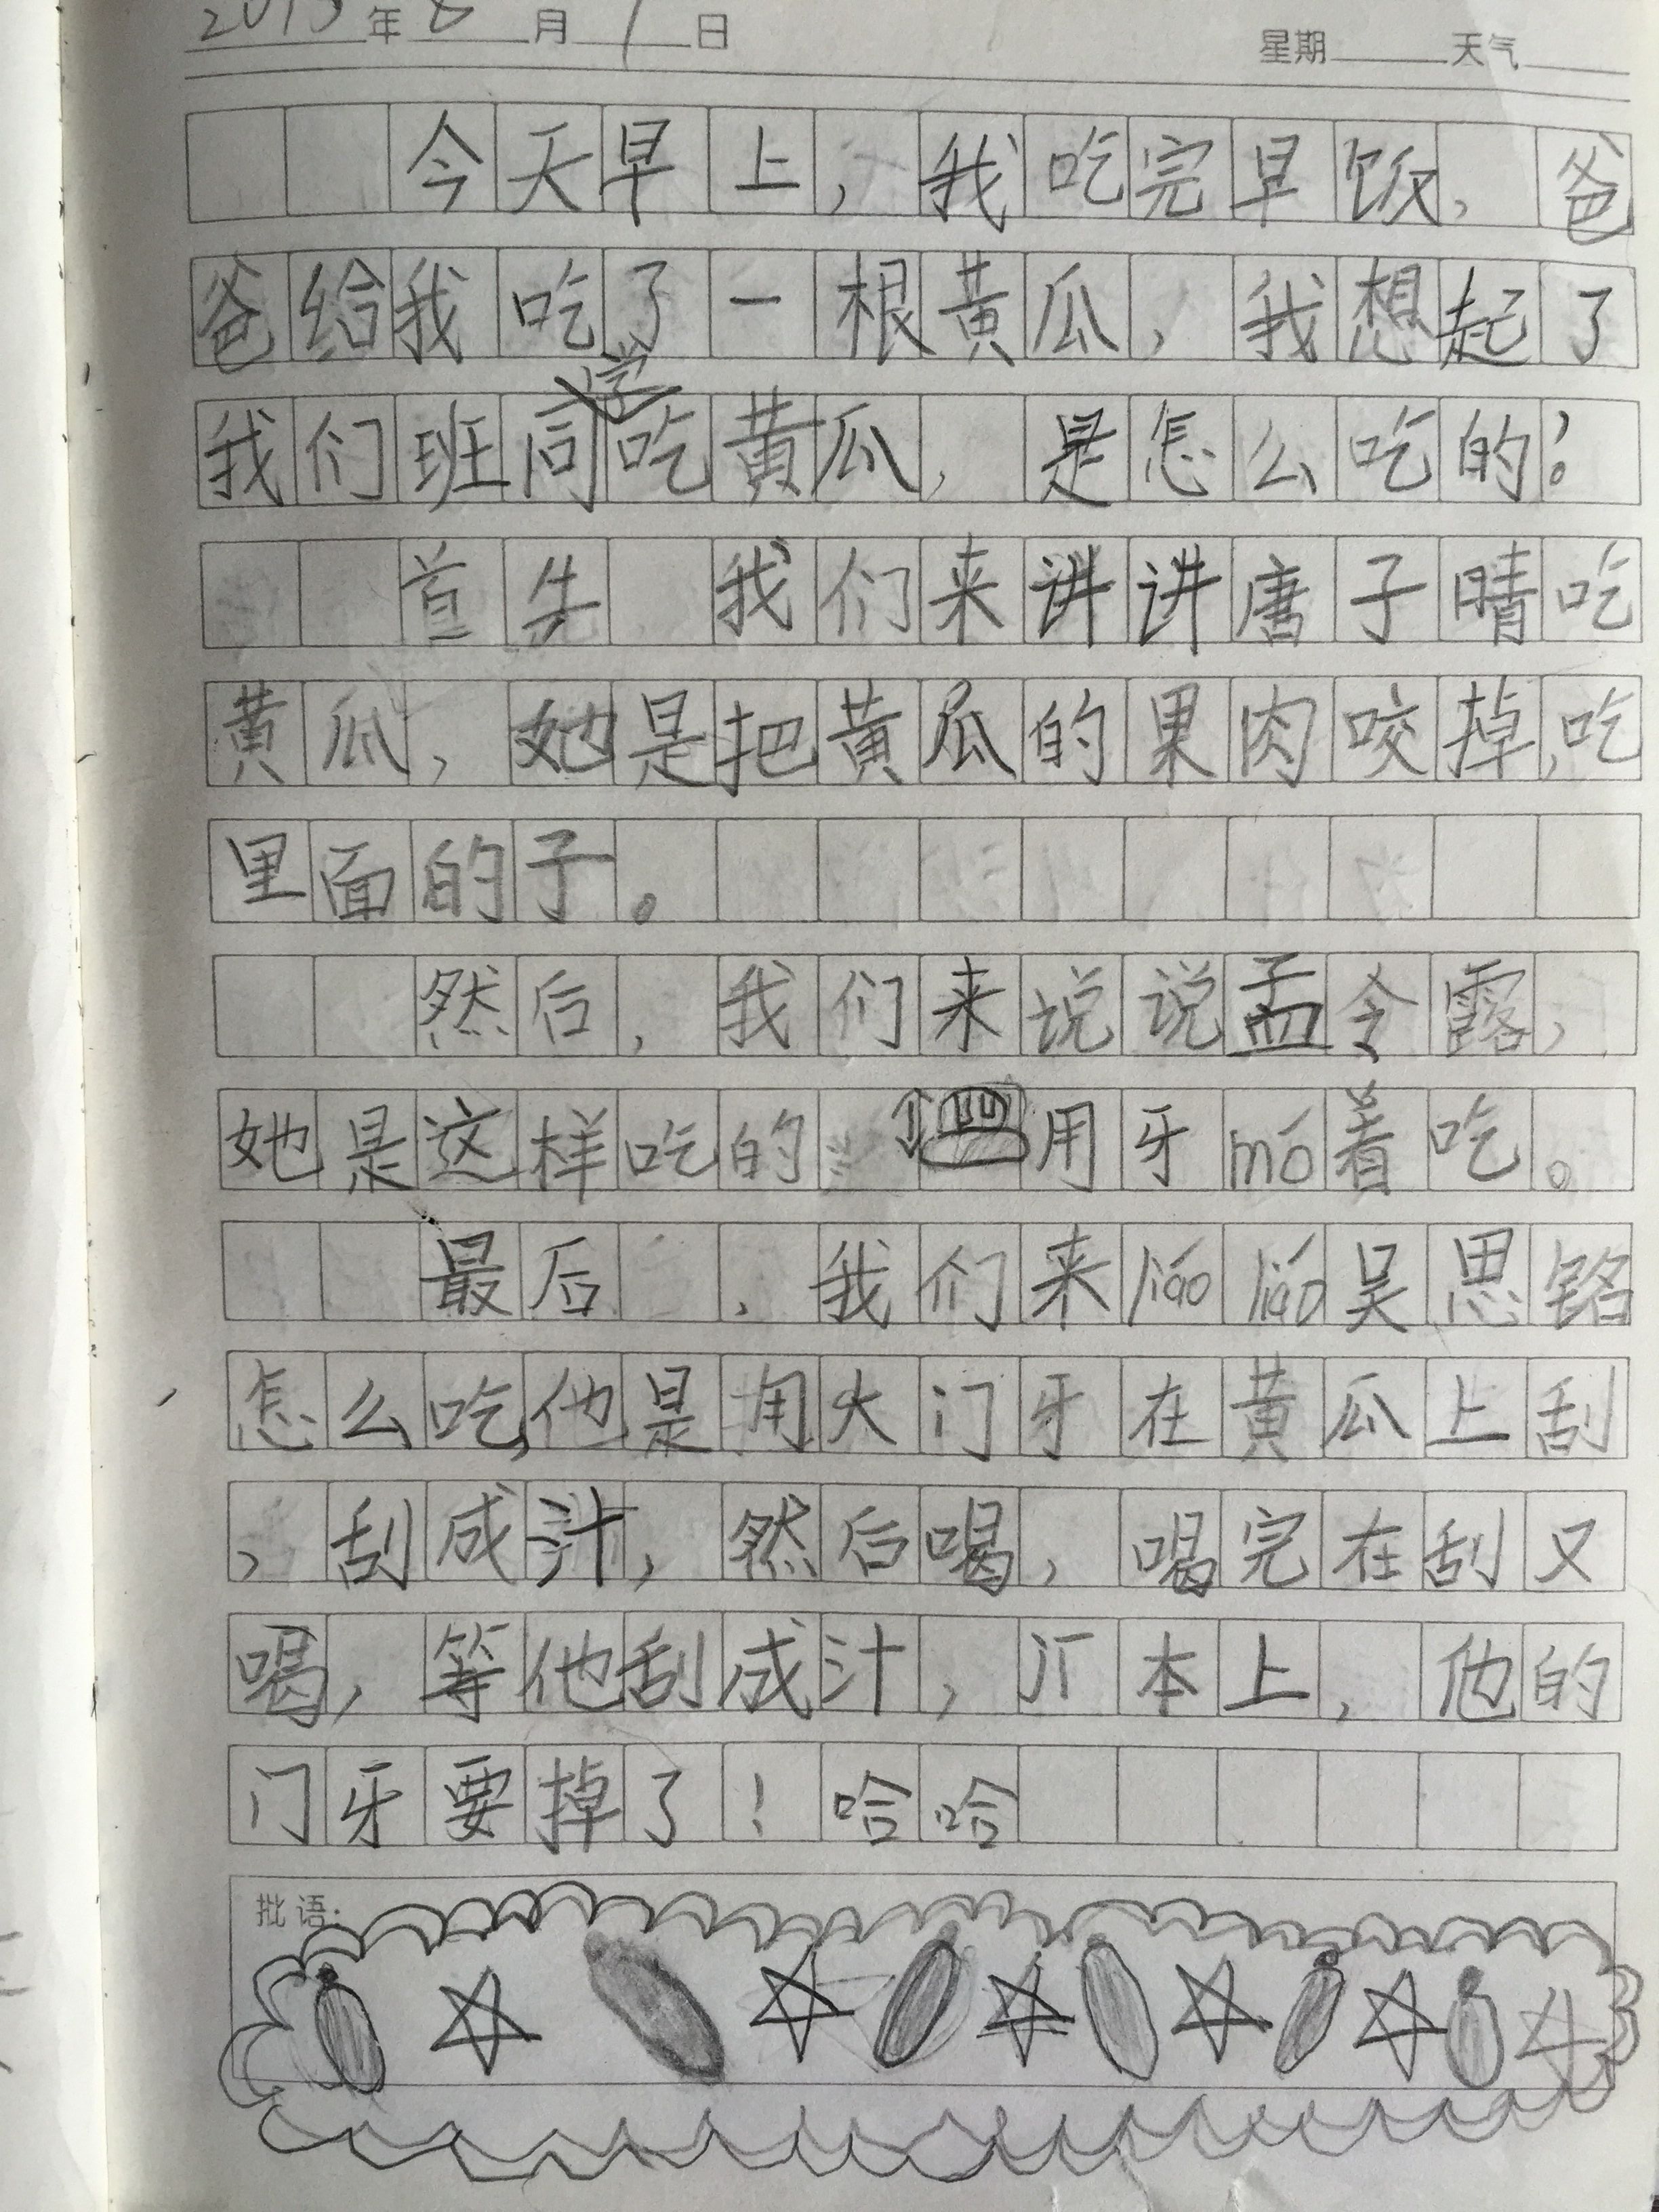 2015年8月1日 星期 天气
今天早上，我吃完早饭，爸
爸给我吃了一根黄瓜，我想起了
我们班同学吃黄瓜，是怎么吃的！
首先 我们来讲讲唐子晴吃
黄瓜，她是把黄瓜的果肉咬掉，吃
里面的子。
然后，我们来说说孟令露，
她是这样吃的 用牙mó着吃。
最后，我们来liáo liáo吴思铭
怎么吃，他是用大门牙在黄瓜上刮
，刮成汁，然后喝，喝完在刮又
喝，等他刮成汁，本上，他的
门牙要掉了！哈哈
批语：